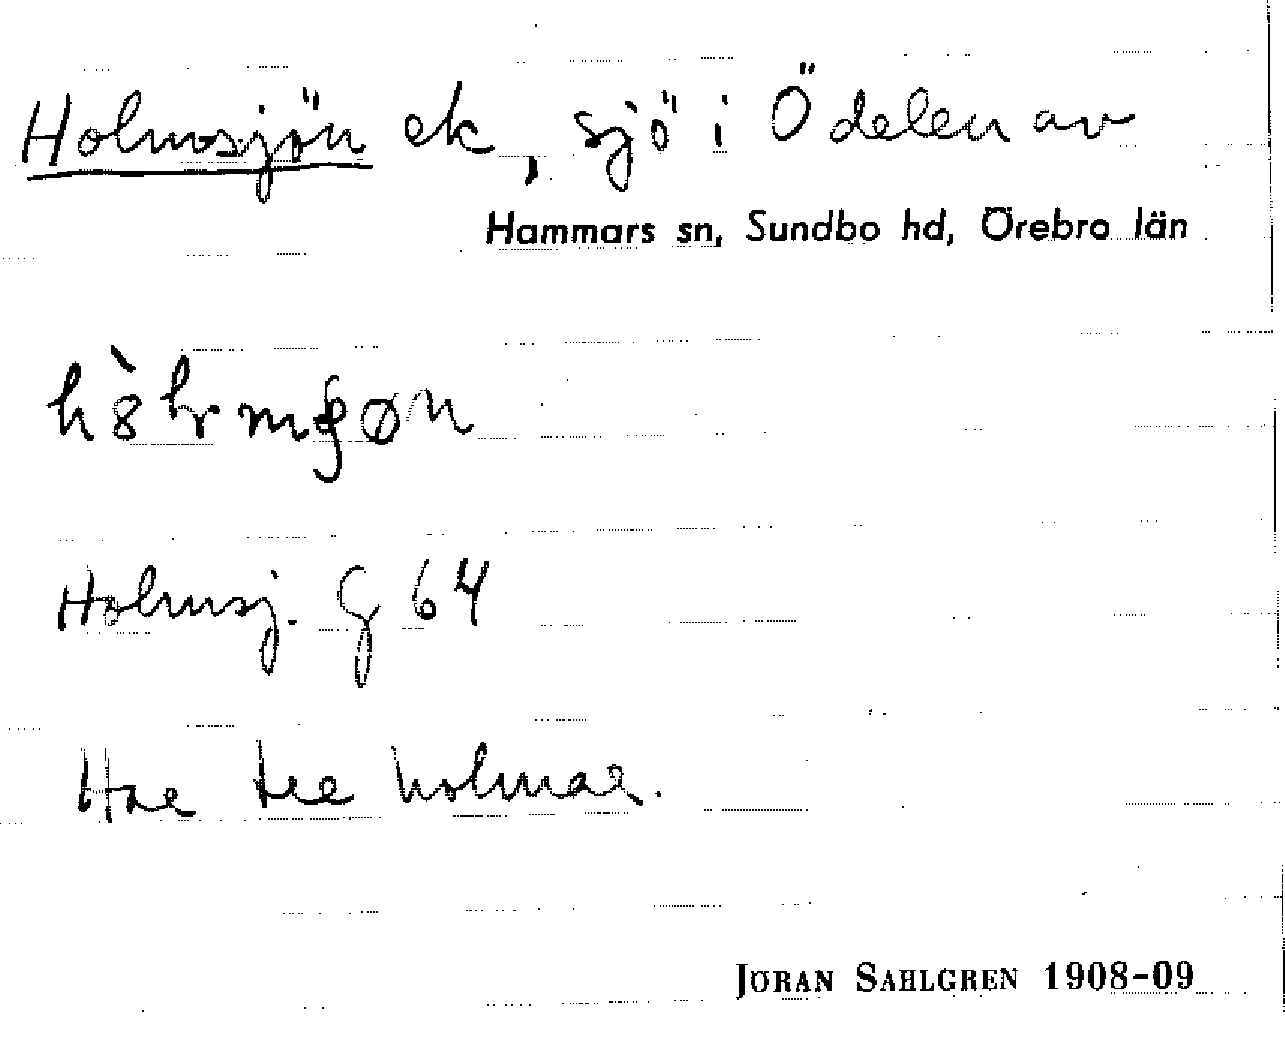 Holmsjön ek, sjö i Ödelen av
Hammars sn, Sundbo hd, Örebro län
Holmsj. G 64
Har tre holmar.
JÖRAN SAHLGREN 1908-09